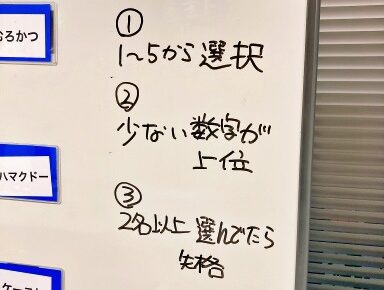 むろかつ
ハマクドー
①
1〜5から選択
②
少ない数字が
上位
③
2名以上 選んでたら
失格